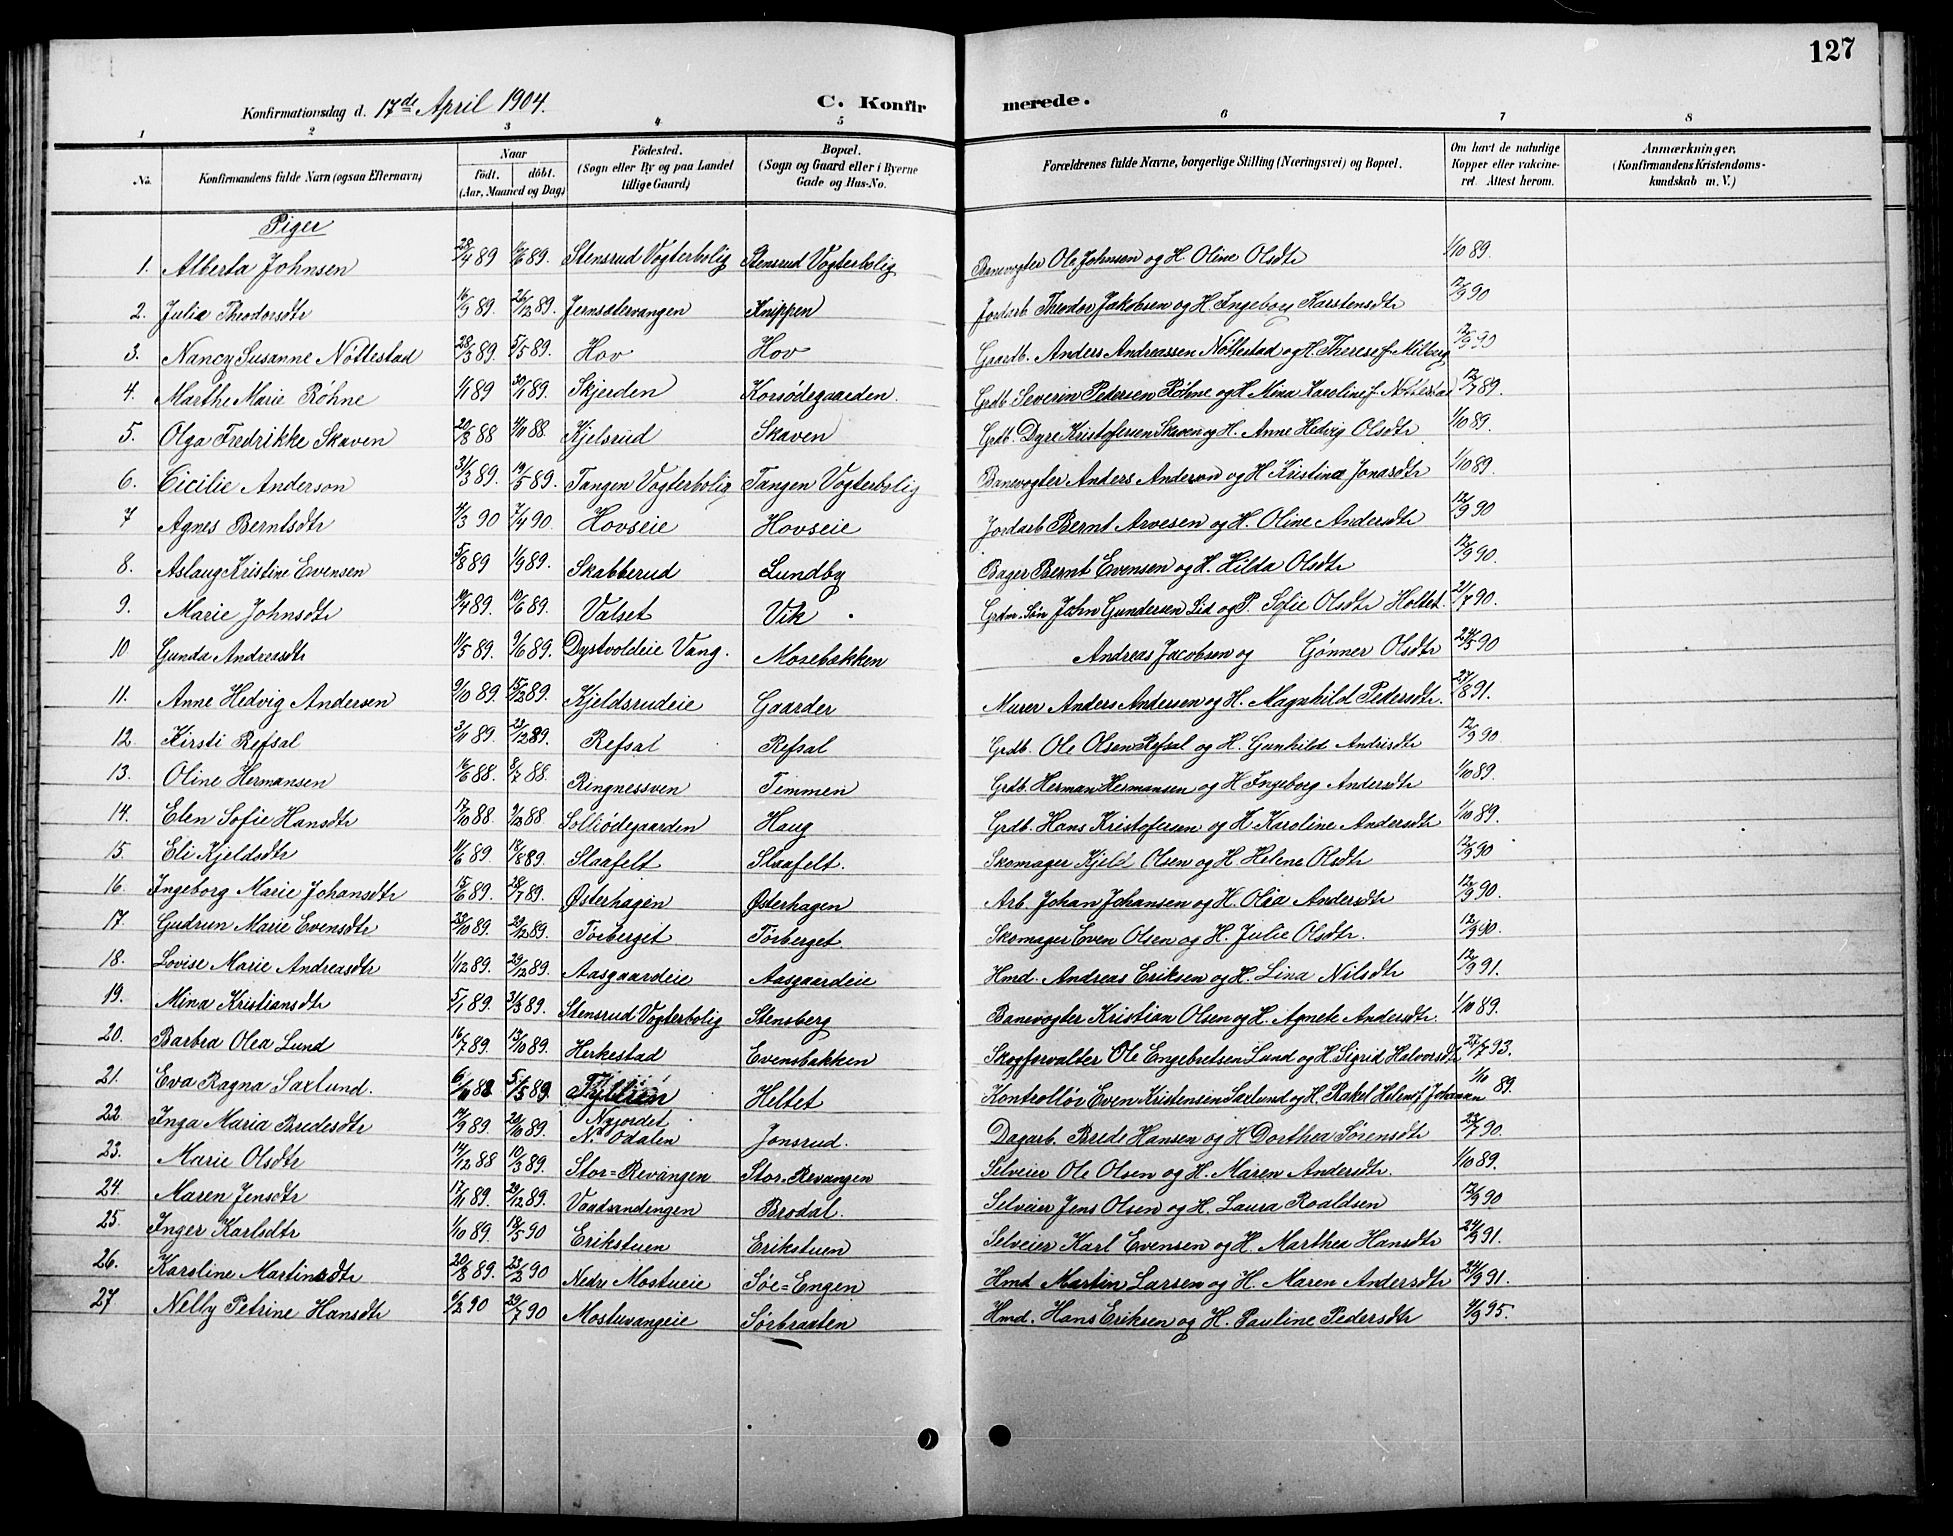 127
Konfirmationsdag d. 17de April 1904. C. Konfirmerede.
1 2 3 4 5 6 7 8
No. Konfirmandens fulde Navn (ogsaa Efternavn) Naar födt. döbt. (Aar, Maaned og Dag) Födested. (Sogn eller By og paa Landet tillige Gaard) Bopæl. (Sogn og Gaard eller i Byerne Gade og Hus-No. Forældrenes fulde Navne, borgerlige Stilling (Næringsvei) og Bopæl. Om havt de naturlige Kopper eller vakcineret. Attest herom. Anmærkninger. (Konfirmandens Kristendomskundskab m. V.)
Piger
1. Alberta Johnsen 28/4 89 10/6 89. Stensrud Vogterbolig Stensrud Vogterbolig Banevogter Ole Johnsen og H. Oline Olsdtr 1/10 89.
2. Julie Theodorsdtr 16/9 89. 26/12 89. Jernsætervangen Knippen Jordarb. Theodor Jakobsen og H. Ingeborg Karstensdtr 12/9 90
3. Nancy Susanne Nöttestad 28/3 89. 5/5 89. Hov Hov Gaardb. Anders Andreassen Nöttestad og H. Therese f. Milberg 12/9 90
4. Marthe Marie Röhne 1/1 89 30/1 89. Skjerden Korsödegaarden. Grdb. Severin Pedersen Röhne og H. Mina Karoline f. Nöttestad 12/7 89.
5. Olga Fredrikke Skaven 20/8 88 4/11 88. Kjelsrud Skaven Grdb. Dyre Kristofersen Skaven og H. Anne Hedvig Olsdtr 1/10 89.
6. Cicilie Anderson 31/3 89. 19/5 89. Tangen Vogterbolig Tangen Vogterbolig Banevogter Anders Anderson og H Kristina Jonasdtr 1/10 89.
7 Agnes Berntsdtr 4/3 90 7/4 90. Hovseie Hovseie Jordarb Bernt Arvesen og H. Oline Andersdtr 12/9 90
8. Aslaug Kristine Evensen 5/8 89 1/9 89. Skabberud Lundby Bager Bernt Evensen og H. Hilda Olsdtr 12/9 90.
9. Marie Johnsdtr 14/4 89. 10/6 89. Valset Vik Grdm. Sön John Gundersen Lid og P. Sofie Olsdtr Holtet. 21/7 90.
10 Gunda Andreasdtr 11/5 89. 9/6 89. Dystvoldeie Vang. Mosebækken Andreas Jacobsen og Gönner Olsdtr 24/5 90
11. Anne Hedvig Andersen 9/10 89. 15/12 89. Kjeldsrudeie Gaarder Murer Anders Andersen og H. Magnhild Pedersdtr. 27/8 91.
12 Kirsti Refsal 3/11 89. 22/12 89. Refsal Refsal Grdb. Ole Olsen Refsal og H. Gunhild Andrisdtr 12/9 90
13. Oline Hermansen 16/6 88. 8/7 88. Ringnessven Timmen Grdb. Herman Hermansen og H Ingeborg Andersdtr 1/10 89.
14. Elen Sofie Hansdtr 17/10 88. 9/12 88. Solliödegaarden Haug Grdb. Hans Kristofersen og H Karoline Andersdtr 1/10 89.
15. Eli Kjeldsdtr 11/6 89. 18/8 89. Slaafelt Slaafelt. Skomager Kjeld Olsen og H. Helene Olsdtr 12/9 90
16. Ingeborg Marie Johansdtr 15/6 89. 28/7 89. Østerhagen Østerhagen Arb. Johan Johansen og H. Olea Andersdtr 12/9 90.
17. Gudrun Marie Evensdtr 23/10 89. 29/12 89. Torberget Torberget Skomager Even Olsen og H. Julie Olsdtr. 12/9 90.
18. Lovise Marie Andreasdtr 1/12 89. 29/12 89. Aasgaardeie Aasgaardeie Hmd. Andreas Eriksen og H. Lina Nilsdtr 12/9 91.
19. Mina Kristiansdtr 5/1 89. 31/3 89. Stensrud Vogterbolig Stensberg Banevogter Kristian Olsen og H. Agnete Andersdtr. 1/10 89.
20. Barbra Olea Lund 16/7 89. 13/10 89. Herkestad Evensbakken Skogforvalter Ole Engebretsen Lund og H. Sigrid Halvorsdtr 27/7 93.
21. Eva Ragna Saxlund. 5/5 89. Heltet Kontrollör Even Kristensen Saxlund og H. Rakel Helene f. Johansen 1/10 89.
22 Inga Maria Bredesdtr 14/9 89. 20/10 89. Nyjordet N. Odalen Jonsrud. Dagarb. Brede Hansen og H Dorthea Sörensdtr 23/7 90.
23. Marie Olsdtr 14/12 88 10/3 89. Stor=Revangen Stor=Revangen Selveier Ole Olsen og H. Maren Andersdtr. 1/10 89.
24. Maren Jensdtr 17/11 89. 29/12 89. Vaatsandengen Brodal. Selveier Jens Olsen og H. Laura Roaldsen 12/9 90
25. Inger Karlsdtr 1/10 89. 18/5 90 Erikstuen Erikstuen Selveier Karl Evensen og H. Marthea Hansdtr 24/9 91.
26. Karoline Martinsdtr 20/8 89. 23/2 90 Nedre Mostueie Söe=Engen Hmd Martin Larsen og H. Maren Andersdtr 24/9 91.
27 Nelly Petrine Hansdtr 6/2 90 20/7 90 Mostuvangeie Sörbraaten Hmd. Hans Eriksen og H. Pauline Pedersdtr 4/9 95.